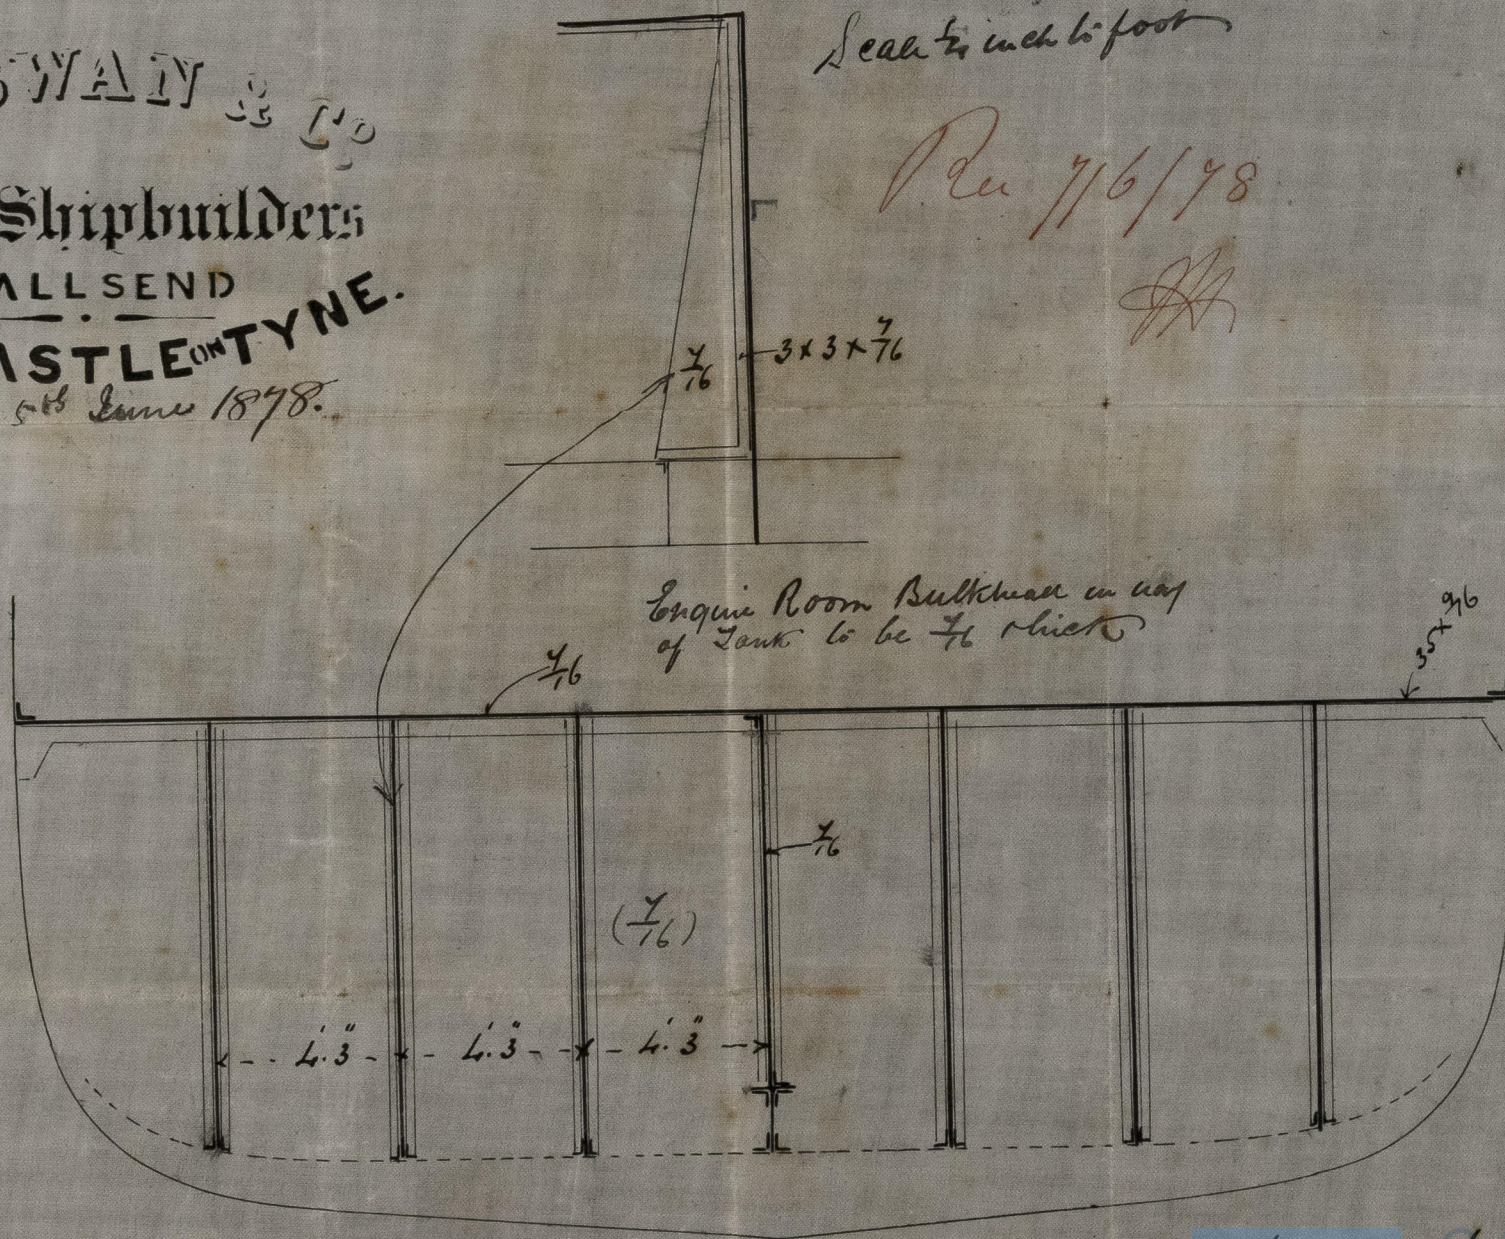 SWAN & Co
Shipbuilders
ALLSEND
ASTLE ON TYNE.
5th June 1878.
Scale inch to foot
7/6/78
7/16
3 x 3 x 7/16
Engine Room Bulkhead in way
of Tank to be 7/16 thick
7/16
7/16
(7/16)
4'.3" 4'.3" 4'.3"